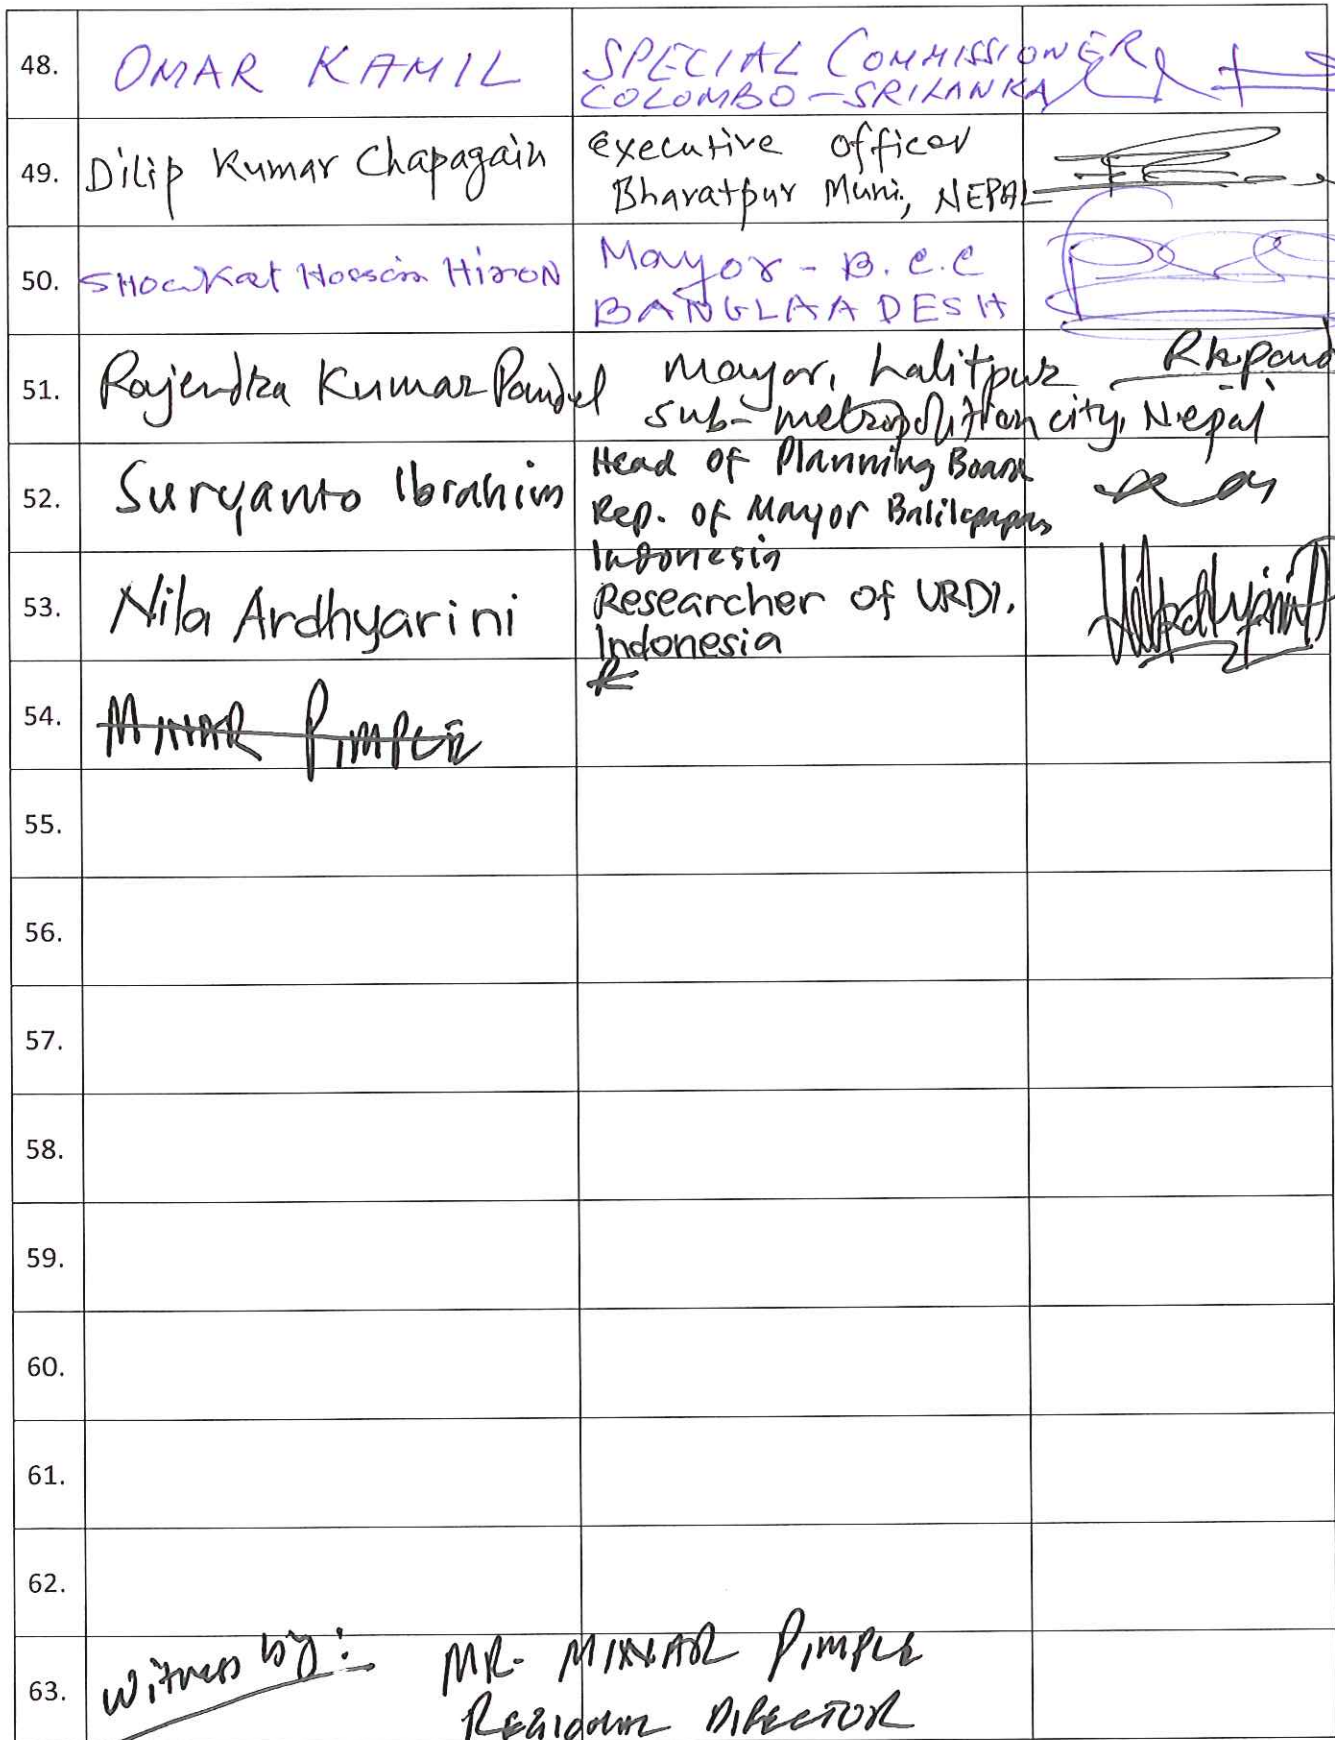 48. OMAR KAMIL SPECIAL COMMISSIONER
COLOMBO - SRILANKA
49. Dilip Kumar Chapagain executive officer
Bharatpur Muni, NEPAL
50. SHOwKat Hossain HiroN Mayor - B.C.C
BANGLAADESH
51. Rajendra Kumar Paudel Mayor, Lalitpur Rkpaud
sub-metropolitian city, Nepal
52. Suryanto Ibrahim Head of Planning Board
Rep. of Mayor Balikpapan
Indonesia
53. Nila Ardhyarini Researcher of URDI,
Indonesia
54. MINAR PIMPLE
55.
56.
57.
58.
59.
60.
61.
62.
63. Witness by: MR. MINAR PIMPLE
REGIONAL DIRECTOR